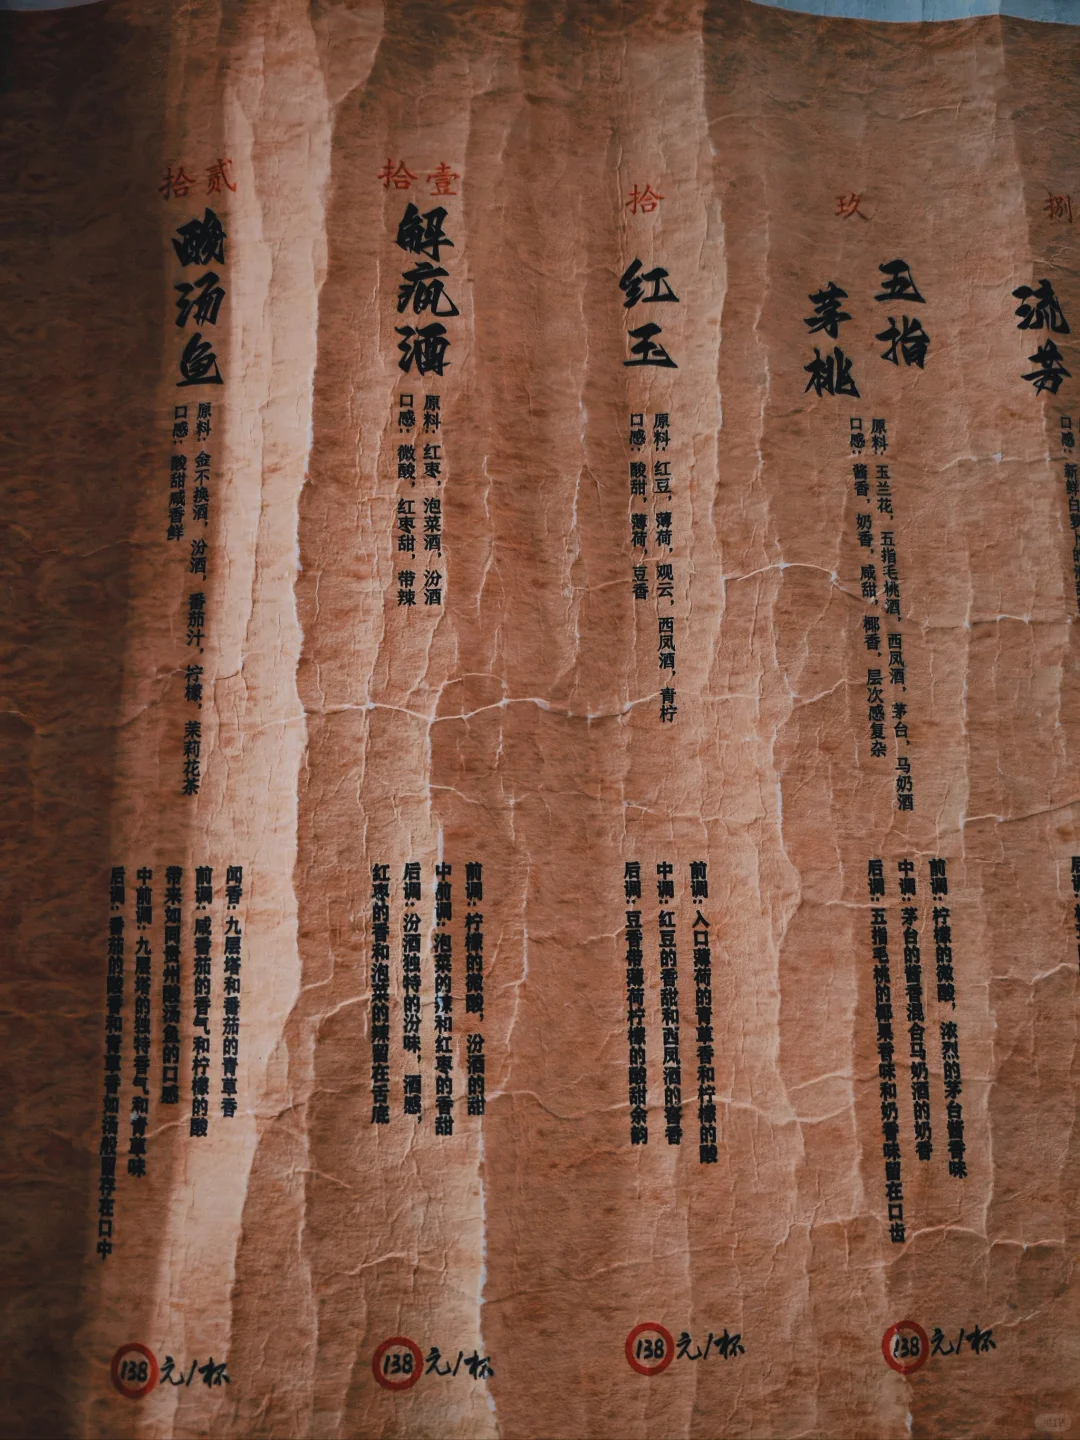 捌
流芳
口感：
玖
五指
茅桃
原料：玉兰花，五指毛桃酒，西凤酒，茅台，马奶酒
口感：酱香，奶香，咸甜，椰香，层次感复杂
前调：柠檬的微酸，浓烈的茅台酱香味
中调：茅台的酱香混合马奶酒的奶香
后调：五指毛桃的椰果香味和奶香味留在口齿
138元/杯
拾
红玉
原料：红豆，薄荷，观云，西凤酒，青柠
口感：酸甜，薄荷，豆香
前调：入口薄荷的青草香和柠檬的酸
中调：红豆的香甜和西凤酒的酱香
后调：豆香带薄荷柠檬的酸甜余韵
138元/杯
拾壹
解疯酒
原料：红枣，泡菜酒，汾酒
口感：微酸，红枣甜，带辣
前调：柠檬的微酸，汾酒的甜
中前调：泡菜的辣和红枣的香甜
后调：汾酒独特的汾味，酒感，
红枣的香和泡菜的辣留在舌底
138元/杯
拾贰
酸汤鱼
原料：金不换酒，汾酒，番茄汁，柠檬，茉莉花茶
口感：酸甜咸香鲜
闻香：九层塔和番茄的青草香
前调：咸番茄的香气和柠檬的酸
带来如同贵州酸汤鱼的口感
中前调：九层塔的独特香气和青草味
后调：番茄的酸香和青草香如汤般留存在口中
138元/杯